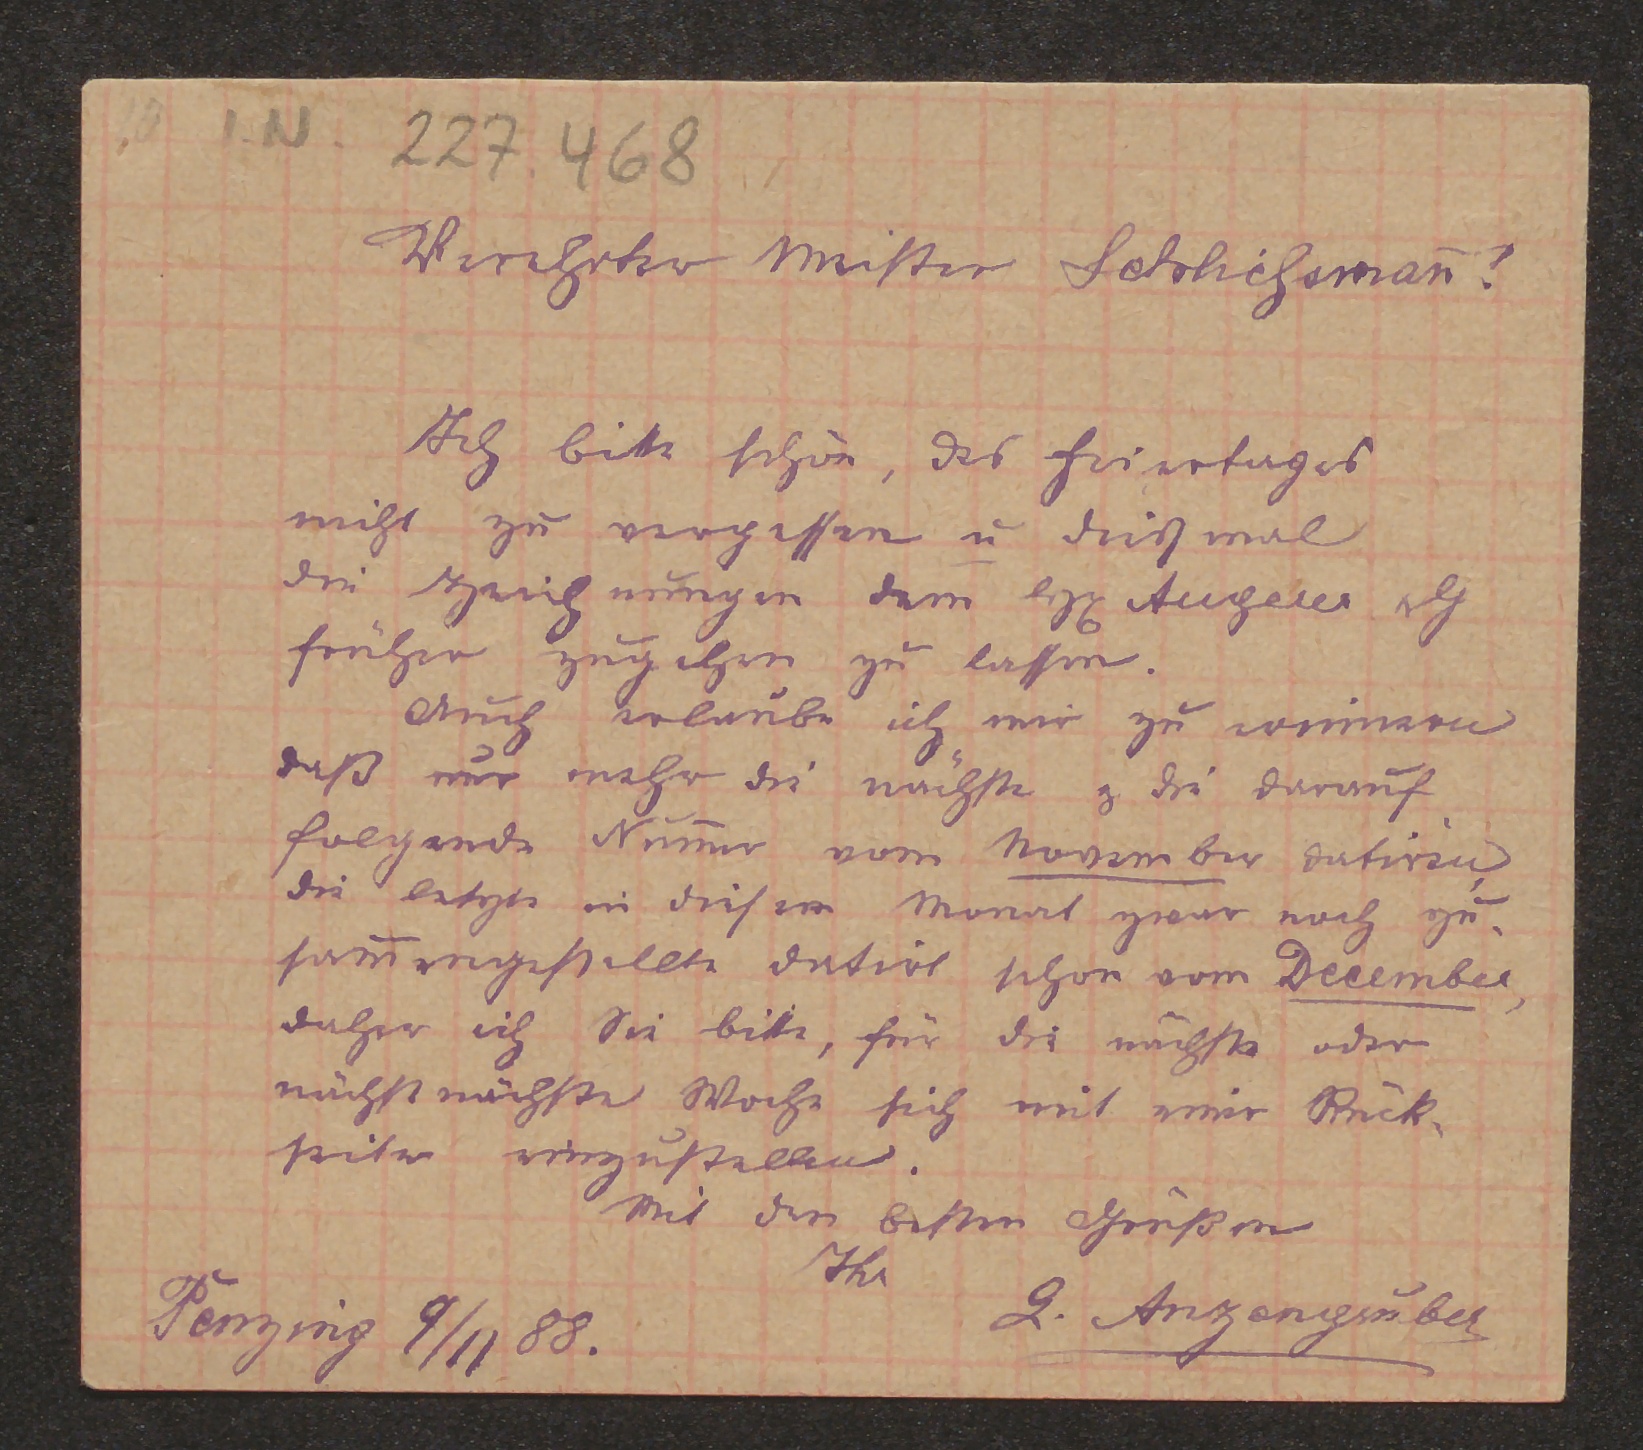 I.N. 227.468
Verehrter Meister Schließmañ!
Ich bitte schön, des Feiertages
nicht zu vergessen u dießmal
die Zeichnungen dem Angerer &G
früher zugehen zu lassen.
Auch erlaube ich mir zu erinnern
daß nur mehr die nächste & die darauf
folgende Num̄er vom November datiren,
die letzte in diesem Monat zwar noch zu-
sam̄engestellte datirt schon vom December,
daher ich Sie bitte, für die nächste oder
nächstnächste Woche sich mit einer Rück-
seite einzustellen.
Mit den besten Grüßen
Ihr
L. Anzengruber
Penzing 9/11 88.